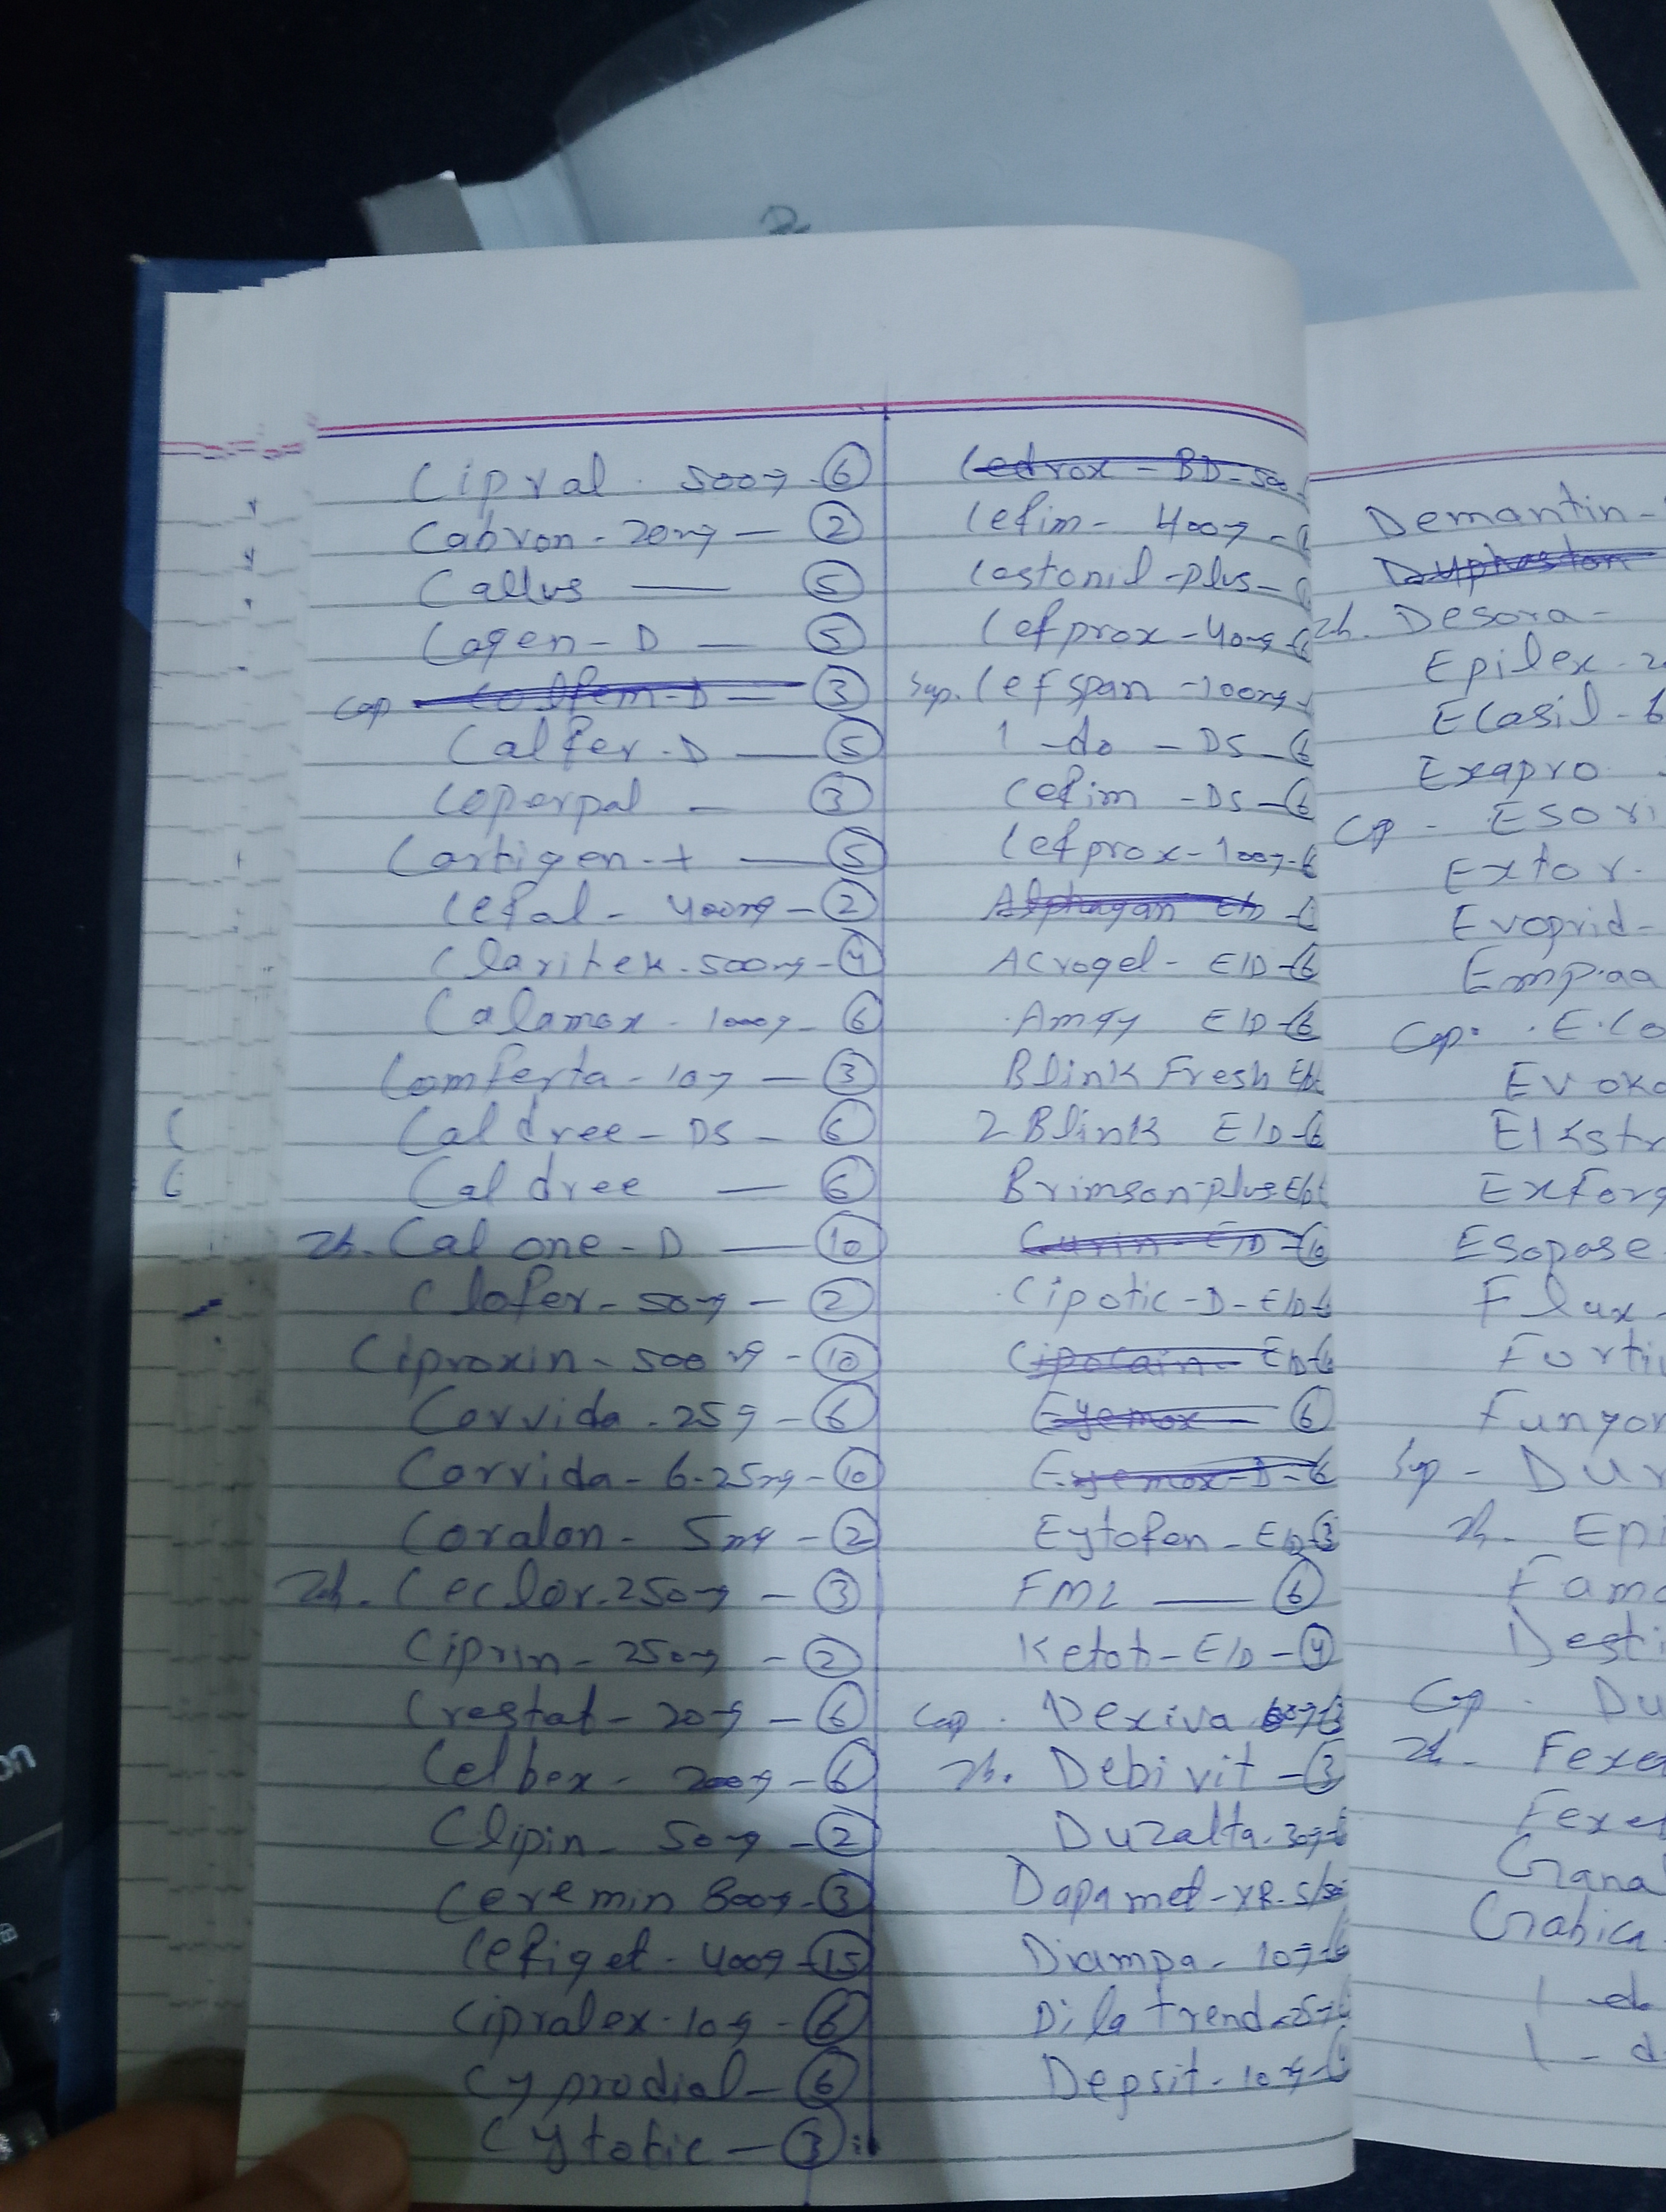 Cipval. 500mg. 6
Cabron - 20mg — 2
Callus — 5
Cogen - D — 5
cap Calfem-D — 3
Calfer. D — 5
Coperpal — 3
Cartigen - + — 5
Cefal - 400mg - 2
Claritek. 500mg - 4
Calamox - 1000g - 6
Comferta - 10g — 3
Caldree - DS - 6
Caldree — 6
Cal one - D — 10
Clofer - 50mg — 2
Ciproxin - 500mg - 10
Corvida - 25g - 6
Corvida - 6.25mg - 10
Coralan - 5mg - 2
Ceclor. 250mg - 3
Ciprin - 250mg - 2
Crestat - 20mg - 6
Celbex - 200mg - 6
Clipin - 50mg - 2
Ceremin 800mg - 3
Cefiget - 400g - 15
Cipralex - 10g - 6
Cyprodial - 6
Cytotic - 3
Cedrox - BD - 500
Cefim - 400g -
Costonil - plus -
Cefprox - 40mg - 6
Cefspan - 100mg -
1 - do - DS - 6
Cefim - DS - 6
Cefprox - 100g - 6
Alphagan E/D -
Acrogel - E/D - 6
Amgy E/D - 6
Blink Fresh E/D
2 Blink E/D - 6
Brimson-plus. E/D
E/D - 10
Cipotic - D - E/D -
Cipocain - E/D - 6
Eyemox — 6
Eyemox - D - 6
Eytofen - E/D 3
FML — 6
Ketoti - E/D - 4
cap. Dexiva 60mg
Debivit - 3
Duzalta. 30mg
Dapa met - XR - 5/
Diampa - 10g - 6
Dilatrend - 25
Depsit - 10mg -
Demantin -
Duphaston
Desora -
Epilex - 2
Ecasil -
Exapro
Esori
Extor -
Evoprid -
Empaa
Cap. E.Co
Evoko
Elkstr
Exforg
Esopase
Flux -
Forti
Fungor
Syp - Dur
Epi
Famo
Desti
Cap. Du
Fexe
Fexe
Gana
Gabica
1 - do
1 - d